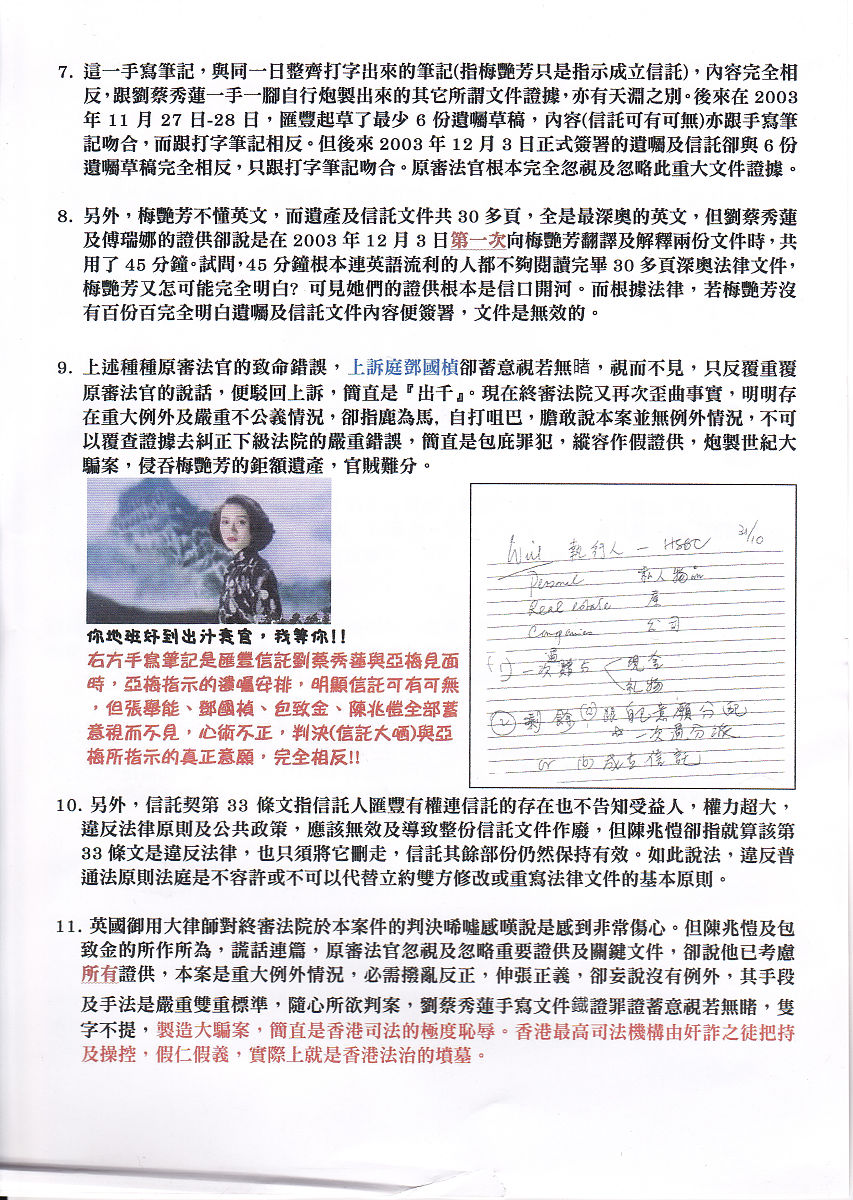 7. 這一手寫筆記，與同一日整齊打字出來的筆記(指梅艷芳只是指示成立信託)，內容完全相
反，跟劉蔡秀蓮一手一腳自行炮製出來的其它所謂文件證據，亦有天淵之別。後來在 2003
年 11 月 27 日-28 日，匯豐起草了最少 6 份遺囑草稿，內容(信託可有可無)亦跟手寫筆
記吻合，而跟打字筆記相反。但後來 2003 年 12 月 3 日正式簽署的遺囑及信託卻與 6 份
遺囑草稿完全相反，只跟打字筆記吻合。原審法官根本完全忽視及忽略此重大文件證據。
8. 另外，梅艷芳不懂英文，而遺產及信託文件共 30 多頁，全是最深奧的英文，但劉蔡秀蓮
及傅瑞娜的證供卻說是在 2003 年 12 月 3 日第一次向梅艷芳翻譯及解釋兩份文件時，共
用了 45 分鐘。試問，45 分鐘根本連英語流利的人都不夠閱讀完畢 30 多頁深奧法律文件，
梅艷芳又怎可能完全明白? 可見她們的證供根本是信口開河。而根據法律，若梅艷芳沒
有百份百完全明白遺囑及信託文件內容便簽署，文件是無效的。
9. 上述種種原審法官的致命錯誤，上訴庭鄧國楨卻蓄意視若無睹，視而不見，只反覆重覆
原審法官的說話，便駁回上訴，簡直是『出千』。現在終審法院又再次歪曲事實，明明存
在重大例外及嚴重不公義情況，卻指鹿為馬, 自打咀巴，膽敢說本案並無例外情況，不可
以覆查證據去糾正下級法院的嚴重錯誤，簡直是包庇罪犯，縱容作假證供，炮製世紀大
騙案，侵吞梅艷芳的鉅額遺產，官賊難分。
你地班奸到出汁衰官，我等你!!
右方手寫筆記是匯豐信託劉蔡秀蓮與亞梅見面
時，亞梅指示的遺囑安排，明顯信託可有可無
，但張舉能、鄧國楨、包致金、陳兆愷全部蓄
意視而不見，心術不正，判決(信託大哂)與亞
梅所指示的真正意願，完全相反!!
31/10
Will 執行人 — HSBC
Personal 私人物品
Real estate 產
Companies 公司
(1) 一次過贈与 現金
礼物
(2) 剩餘 (a) 跟自己意願分配
一次過分派
or (b) 成立信託
10. 另外，信託契第 33 條文指信託人匯豐有權連信託的存在也不告知受益人，權力超大，
違反法律原則及公共政策，應該無效及導致整份信託文件作廢，但陳兆愷卻指就算該第
33 條文是違反法律，也只須將它刪走，信託其餘部份仍然保持有效。如此說法，違反普
通法原則法庭是不容許或不可以代替立約雙方修改或重寫法律文件的基本原則。
11. 英國御用大律師對終審法院於本案件的判決唏噓感嘆說是感到非常傷心。但陳兆愷及包
致金的所作所為，謊話連篇，原審法官忽視及忽略重要證供及關鍵文件，卻說他已考慮
所有證供，本案是重大例外情況，必需撥亂反正，伸張正義，卻妄說沒有例外，其手段
及手法是嚴重雙重標準，隨心所欲判案，劉蔡秀蓮手寫文件鐵證罪證蓄意視若無睹，隻
字不提，製造大騙案，簡直是香港司法的極度恥辱。香港最高司法機構由奸詐之徒把持
及操控，假仁假義，實際上就是香港法治的墳墓。